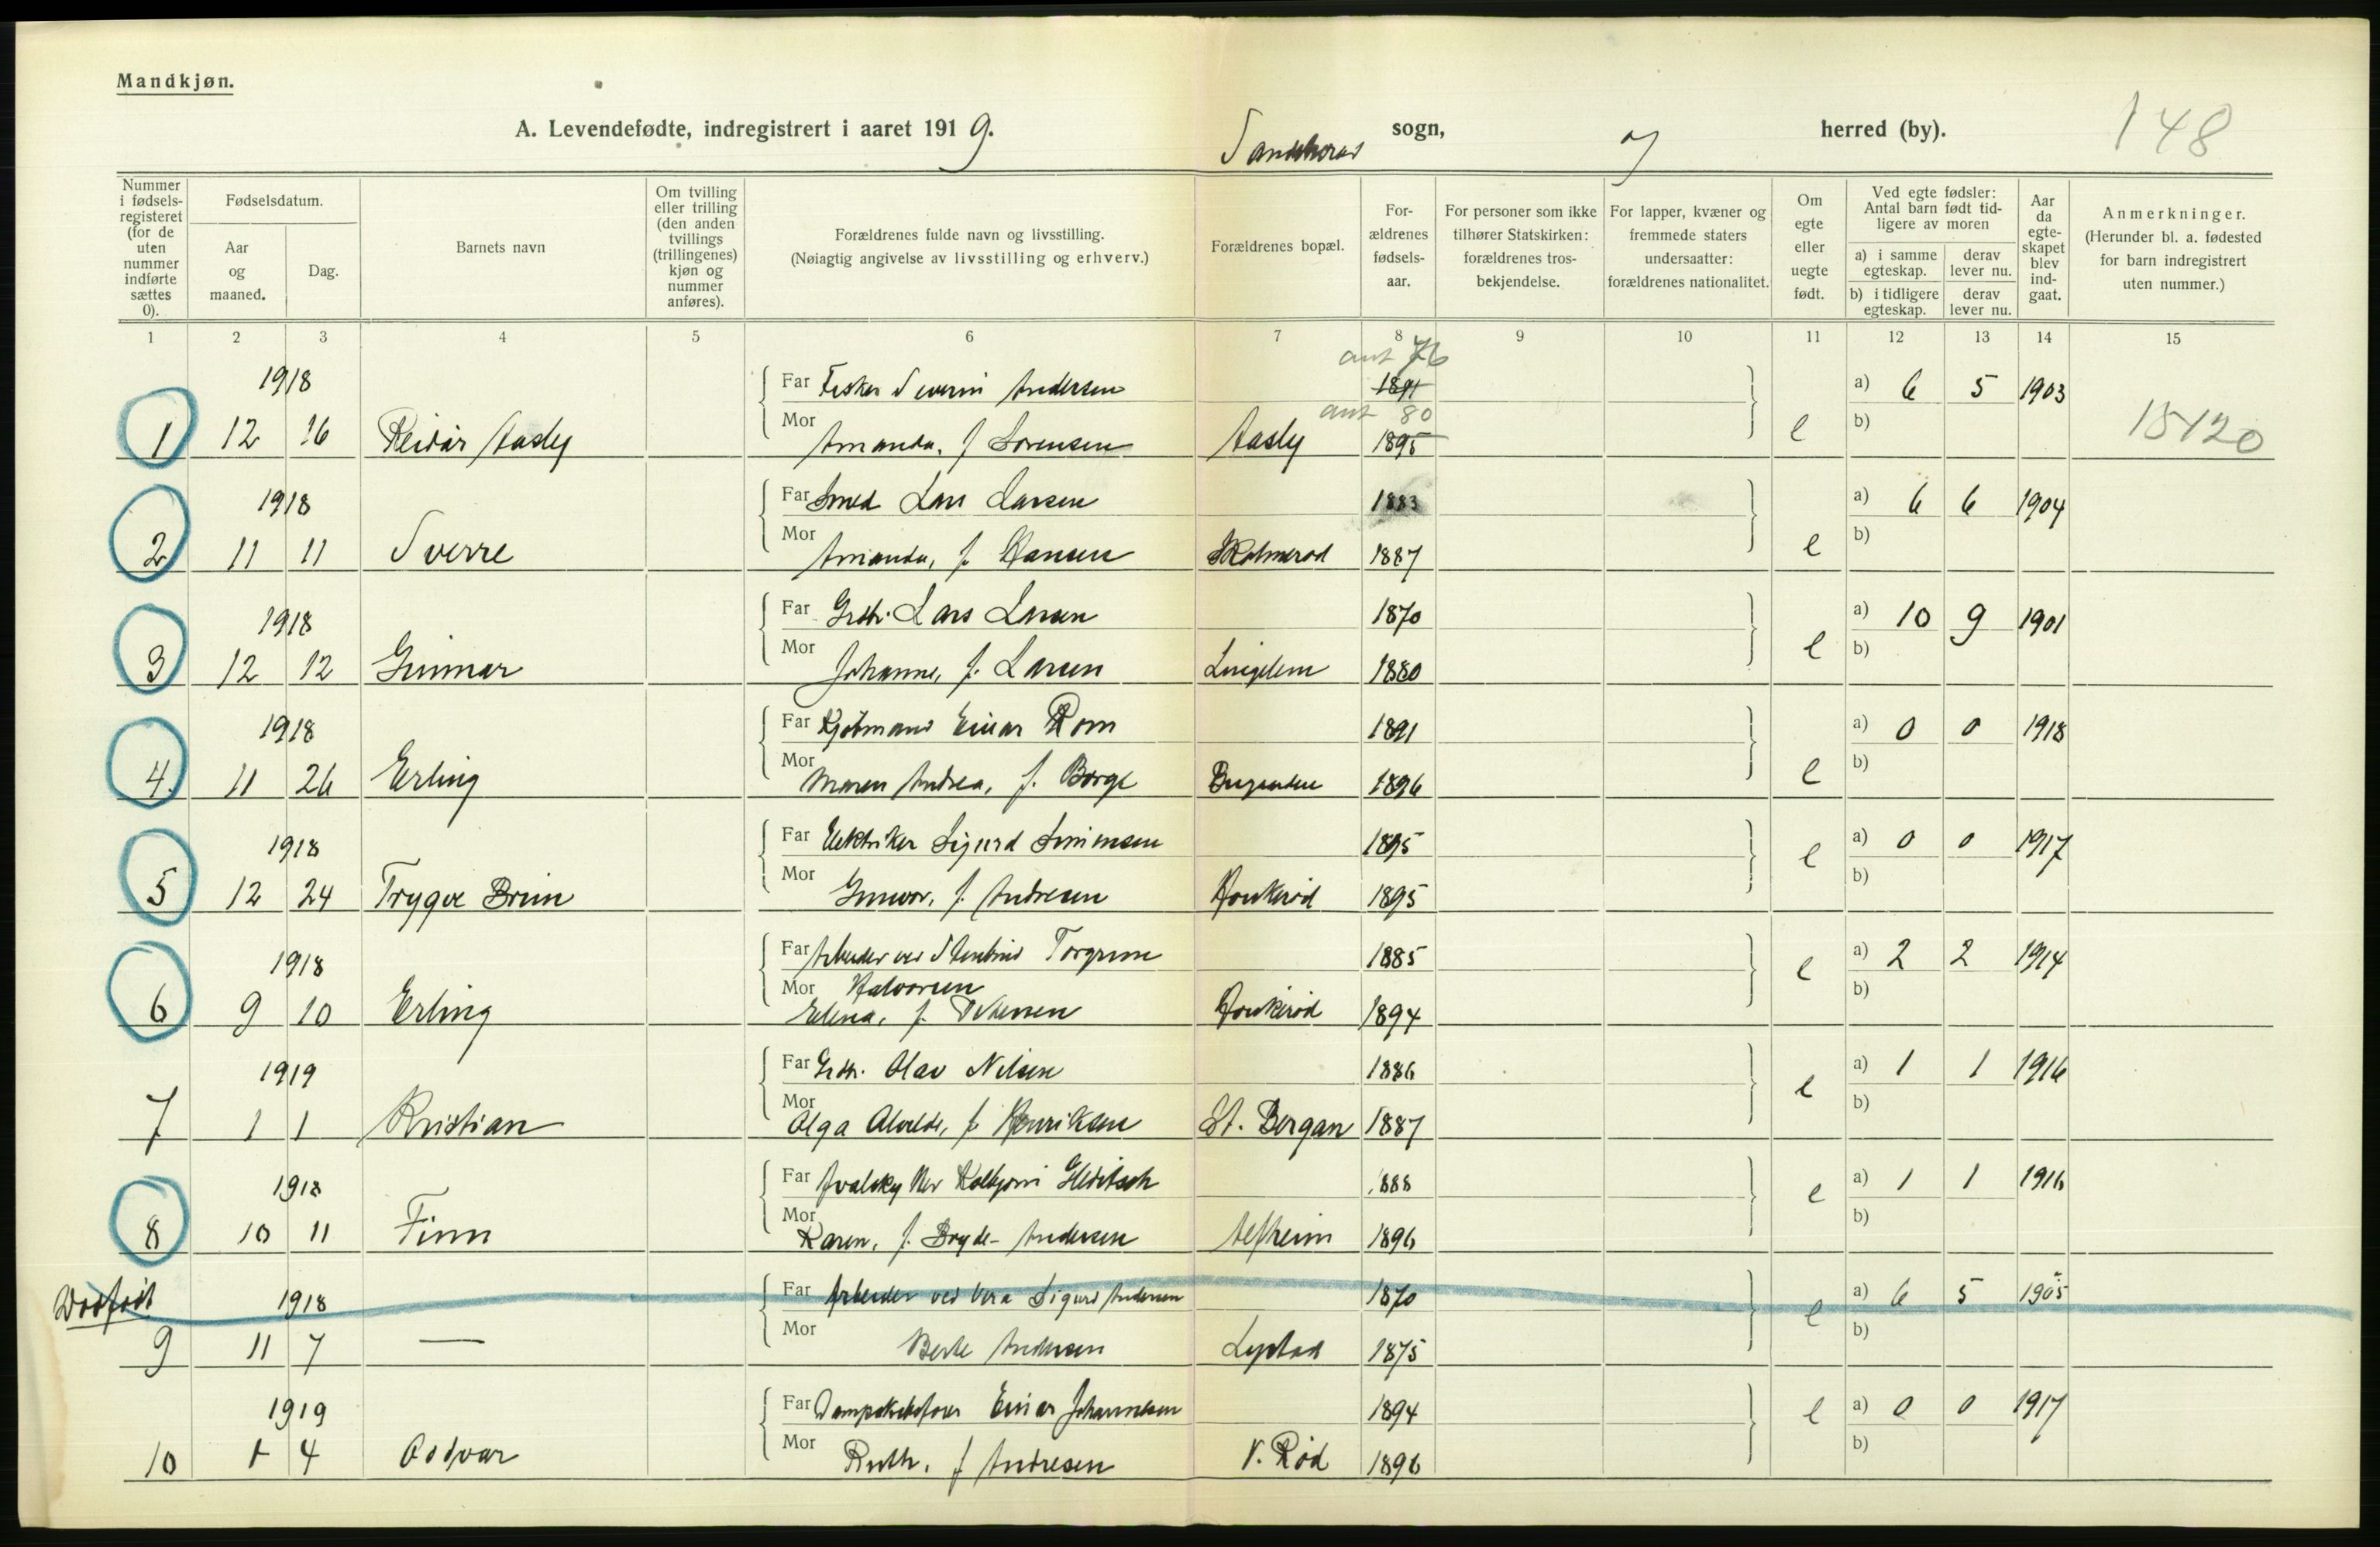 Mandkjøn.
A. Levendefødte, indregistrert i aaret 1919. Sandeherad sogn, herred (by). 148
Nummer i fødselsregisteret (for de uten nummer indførte sættes 0).
Fødselsdatum.
Aar og maaned.
Dag.
Barnets navn
Om tvilling eller trilling (den anden tvillings (trillingenes) kjøn og nummer anføres).
Forældrenes fulde navn og livsstilling.
(Nøiagtig angivelse av livsstilling og erhverv.)
Forældrenes bopæl.
Forældrenes fødselsaar.
For personer som ikke tilhører Statskirken: forældrenes trosbekjendelse.
For lapper, kvæner og fremmede staters undersaatter: forældrenes nationalitet.
Om egte eller uegte født.
Ved egte fødsler: Antal barn født tidligere av moren
a) i samme egteskap. derav lever nu.
b) i tidligere egteskap. derav lever nu.
Aar da egteskapet blev indgaat.
Anmerkninger.
(Herunder bl. a. fødested for barn indregistrert uten nummer.)
1 2 3 4 5 6 7 8 9 10 11 12 13 14 15
ant 76
1918 Far Fisker Severin Andersen 1891 a) 6 5 1903
ant 80
1 12 16 Reidar Aasly Mor Amanda, f. Sørensen Aasly 1895 e b) 15120
1918 Far Smed Lars Larsen 1883 a) 6 6 1904
2 11 11 Sverre Mor Amanda, f. Hansen Skolmerød 1887 e b)
1918 Far Grdbr. Lars Larsen 1870 a) 10 9 1901
3 12 12 Gunnar Mor Johanne, f. Larsen Lingelem 1880 e b)
1918 Far Kjøbmand Einar Rom 1891 a) 0 0 1918
4. 11 26 Erling Mor Maren Andrea, f. Borge 1896 e b)
1918 Far Elektriker Sigurd Simensen 1895 a) 0 0 1917
5 12 24 Trygve Brun Mor Gunvor, f. Andresen Haukerød 1895 e b)
1918 Far Arbeider ved Torgrim 1885 a) 2 2 1914
Mor Halvorsen
6 9 10 Erling f. Pettersen Haukerød 1894 e b)
1919 Far Grdbr. Olav Nilsen 1886 a) 1 1 1916
7 1 1 Kristian Mor Olga Alvilde, f. Henriksen St. Bergan 1887 e b)
1918 Far Hvalskytter Kolbjørn Glditsch 1888 a) 1 1 1916
8 10 11 Finn Mor Karen, f. Bryde-Andersen 1896 e b)
Dødfødt 1918 Far Arbeider ved Vera Sigurd Andersen 1870 a) 6 5 1905
9 11 7 — Mor Berte Andersen Lystad 1875 e b)
1919 Far Dampskibsfører Einar Johannesen 1894 a) 0 0 1917
10 1 4 Oddvar Mor Ruth, f. Andresen V. Rød 1896 e b)